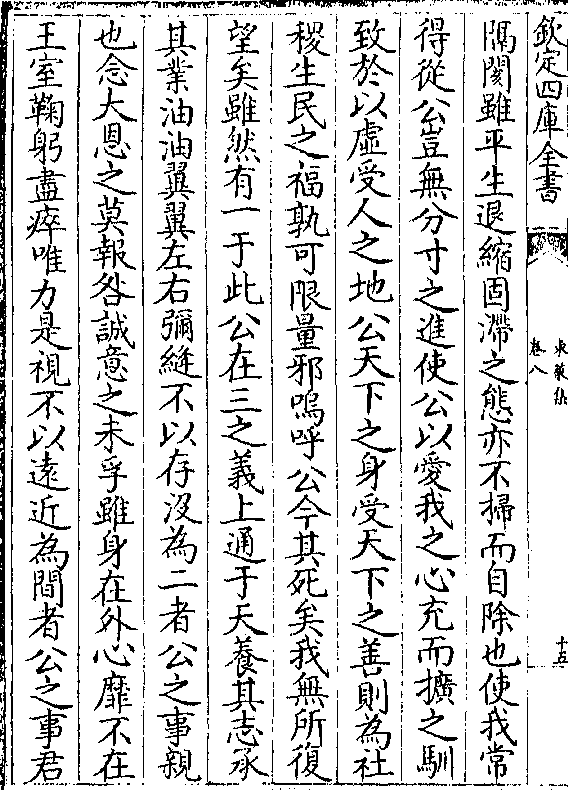 欽定四庫全書
東萊集
卷八
十五
隔閡雖平生退縮固滯之態亦不掃而自除也使我常
得從公豈無分寸之進使公以愛我之心充而擴之馴
致於以虛受人之地公天下之身受天下之善則為社
稷生民之福孰可限量邪嗚呼公今其死矣我無所復
望矣雖然有一于此公在三之義上通于天養其志承
其業油油翼翼左右彌縫不以存沒為二者公之事親
也念大恩之莫報咎誠意之未孚雖身在外心靡不在
王室鞠躬盡瘁唯力是視不以遠近為間者公之事君